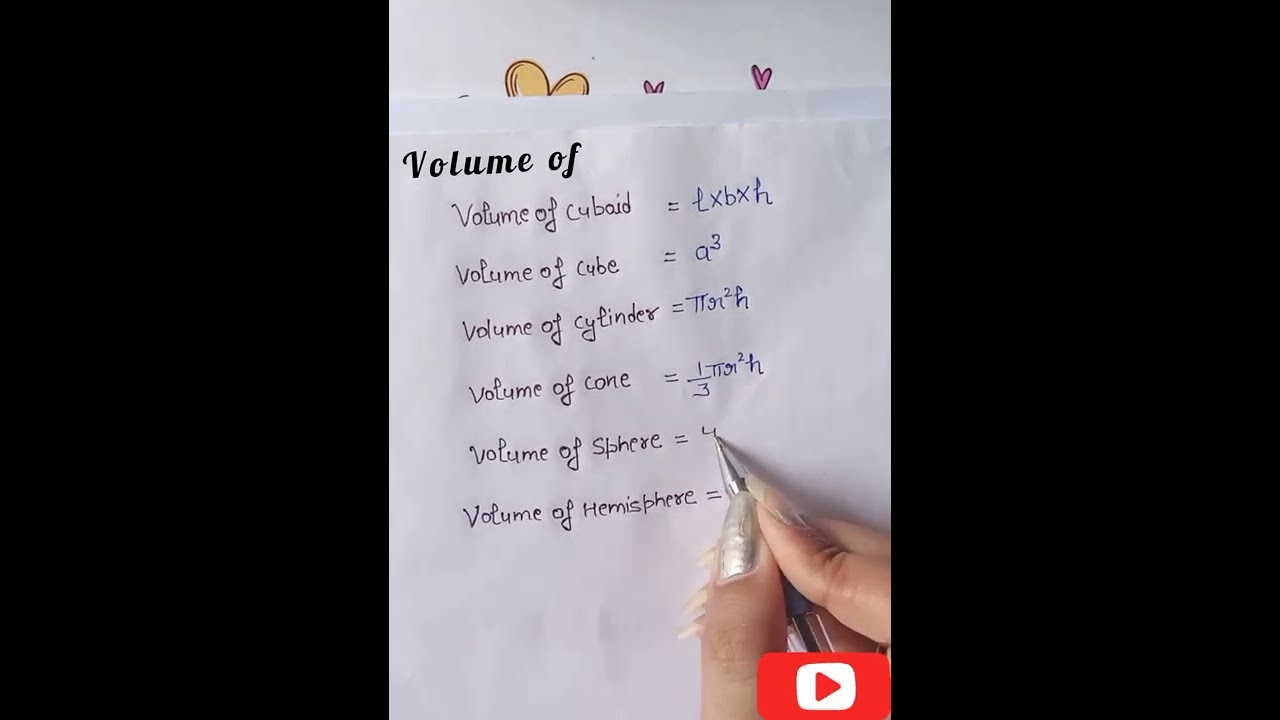 Volume of
Volume of Cuboid = l×b×h
Volume of Cube = a³
Volume of Cylinder = πr²h
Volume of Cone = 1/3 πr²h
Volume of Sphere = 4
Volume of Hemisphere =